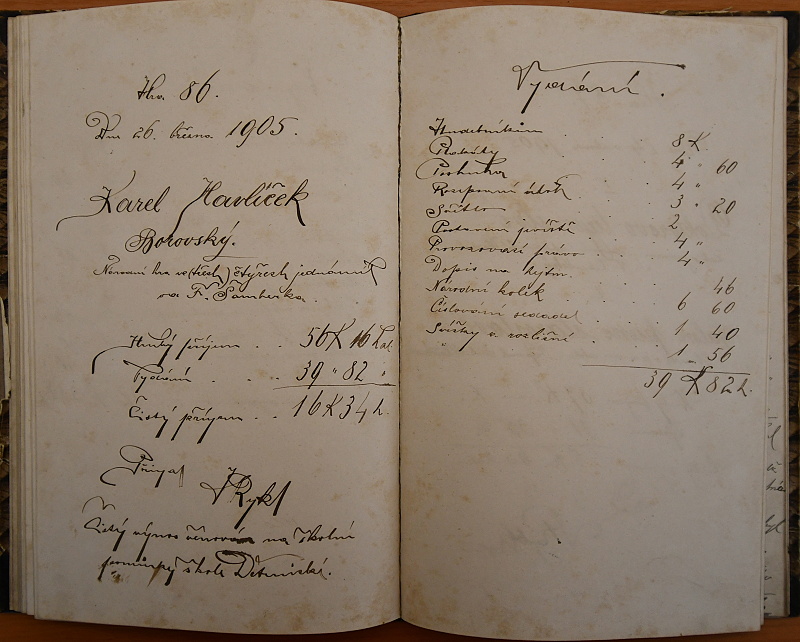 Hra 86.
Dne 26. března 1905.
Karel Havlíček
Borovský.
Národní hra ve (třech) čtyřech jednáních
od F. Šamberka.
Hrubý příjem . . 56 K 16 hal.
Vydání . . . 39 " 82 "
Čistý příjem . . 16 K 34 h.
Přijal JRykl
Čistý výnos věnován na školní
pomůcky škole
Vydání.
Hudebníkům . . . 8 K
Plakáty . . . 4 " 60
. . . 4 "
. . . 3 " 20
Světlo . . . 2
Postavení jeviště . . . 4 "
Provozovací právo . . . 4 "
Dopis na hejtm.
Národní kolek . . . 46
Číslování sedadel . . . 6 60
Svíčky a rozličné . . . 1 40
" . . . 1 56
39 K 82 h.